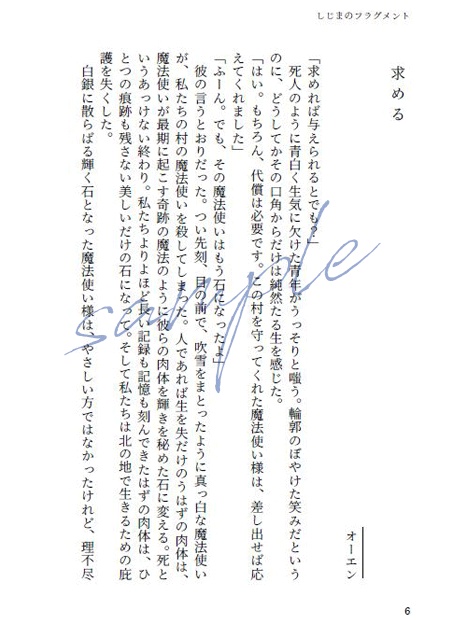 しじまのフラグメント
求める
オーエン
「求めれば与えられるとでも？」
死人のように青白く生気に欠けた青年がうっそりと嗤う。輪郭のぼやけた笑みだという
のに、どうしてかその口角からだけは純然たる生を感じた。
「はい。もちろん、代償は必要です。この村を守ってくれた魔法使い様は、差し出せば応
えてくれました」
「ふーん。でも、その魔法使いはもう石になったよ」
彼の言うとおりだった。つい先刻、目の前で、吹雪をまとったように真っ白な魔法使い
が、私たちの村の魔法使いを殺してしまった。人であれば生を失だけのうはずの肉体は、
魔法使いが最期に起こす奇跡の魔法のように彼らの肉体を輝きを秘めた石に変える。死と
いうあっけない終わり。私たちよりよほど長い記録も記憶も刻んできたはずの肉体は、ひ
とつの痕跡も残さない美しいだけの石になって。そして私たちは北の地で生きるための庇
護を失くした。
白銀に散らばる輝く石となった魔法使い様は、やさしい方ではなかったけれど、理不尽
sample
6